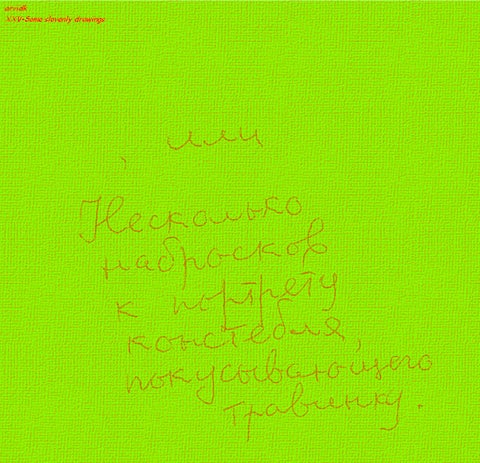 arvidk
XXV-Some slovenly drawings
, или
Несколько
набросков
к портрету
констебля,
покусывающего
травинку.